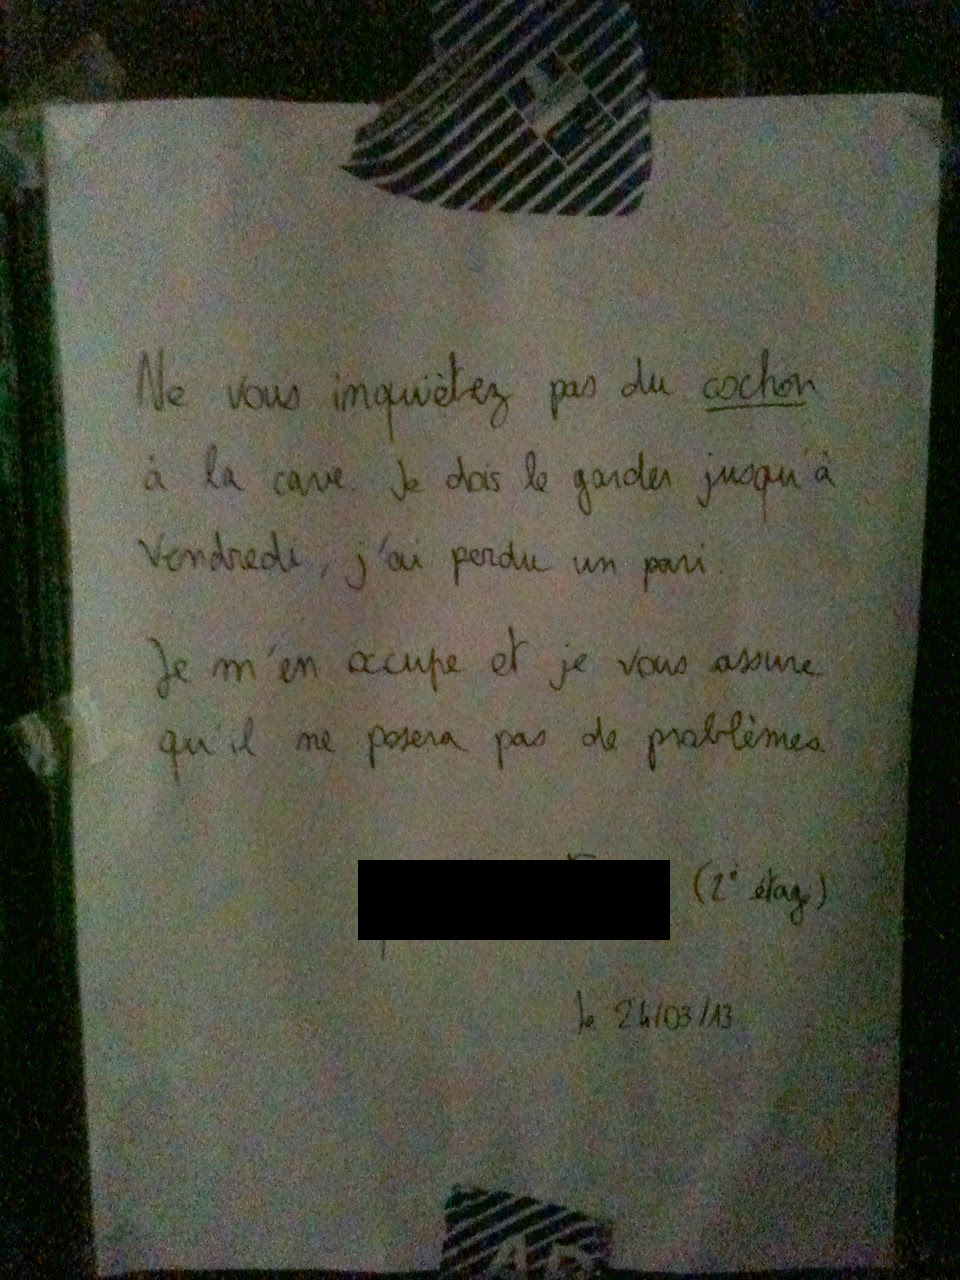 Ne vous inquiètez pas du cochon
à la cave. Je dois le garder jusqu'à
Vendredi, j'ai perdu un pari.
Je m'en occupe et je vous assure
qu'il ne posera pas de problèmes
(2e étage)
le 24/03/13